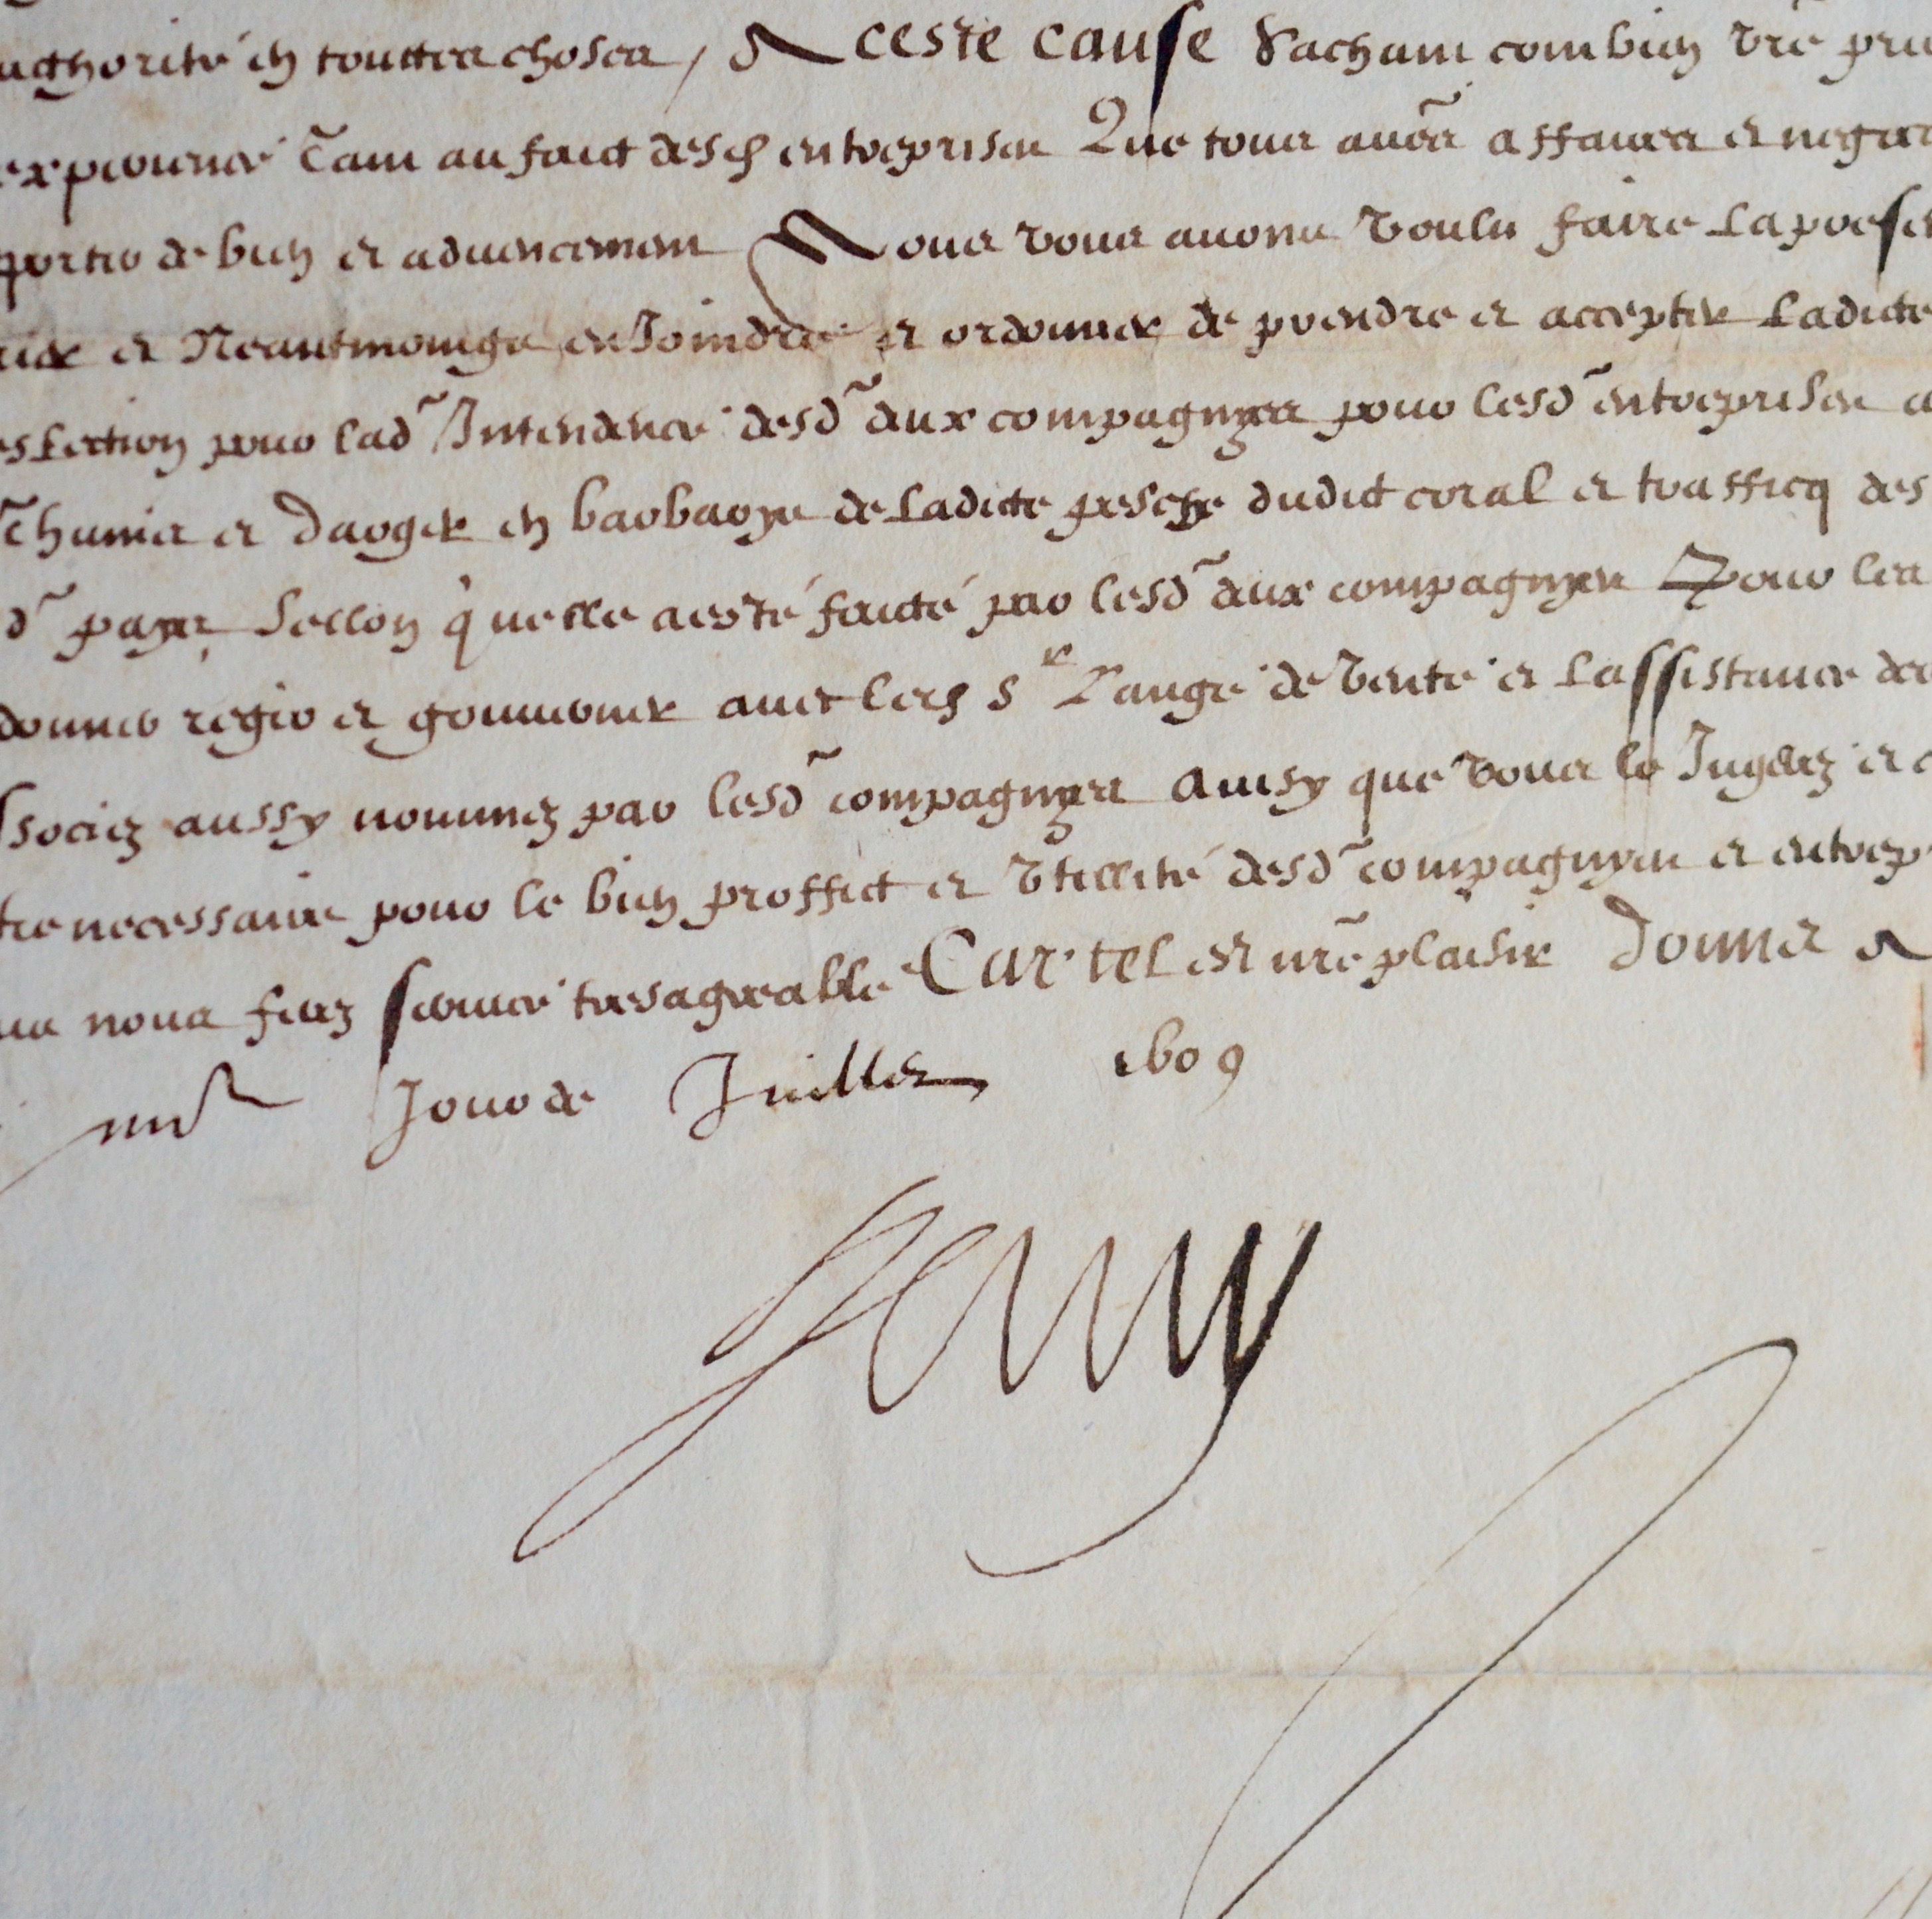 authorité en touttes choses, A ceste cause Sachant combien vre pru
experience Tant au faict desd entreprises Que tous aues affaires et nego
porter de bien et advencement Nous vous avons voulu faire La presen
et Neantmoings enJoindre et ordonner de prendre et accepter Ladicte
eslection pour lad Intendence desd deux compagnyes pour lesd entreprises
Thunis et Dalger en barbarye de Ladicte pesche dudict coral et trafficq des
d pays Sellon quelle a esté faicté par lesd deux compagnyes Pour les
donner regir et gouverner avec led Sr Lange de Vente et Lassistance des
ssociez aussy nommez par lesd compagnyes Ainsy que vous le Jugerez et
tre necessaire pour le bien proffict et Vtillité desd compagnyes et entrep
nous ferez service tresagreable Car tel est nre plaisir Donné A
Jour de Juillet 1609
Henry